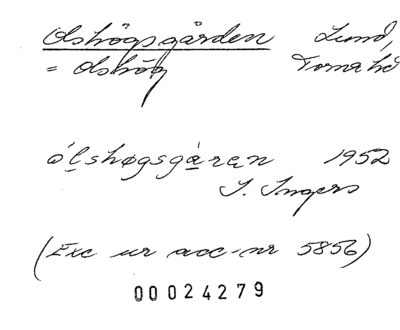 Olshögsgården Lund,
= Olshög Torna hd
ó̀lshøgsgà̱ren 1952
I. Ingers
(Exc ur acc-nr 5856)
00024279